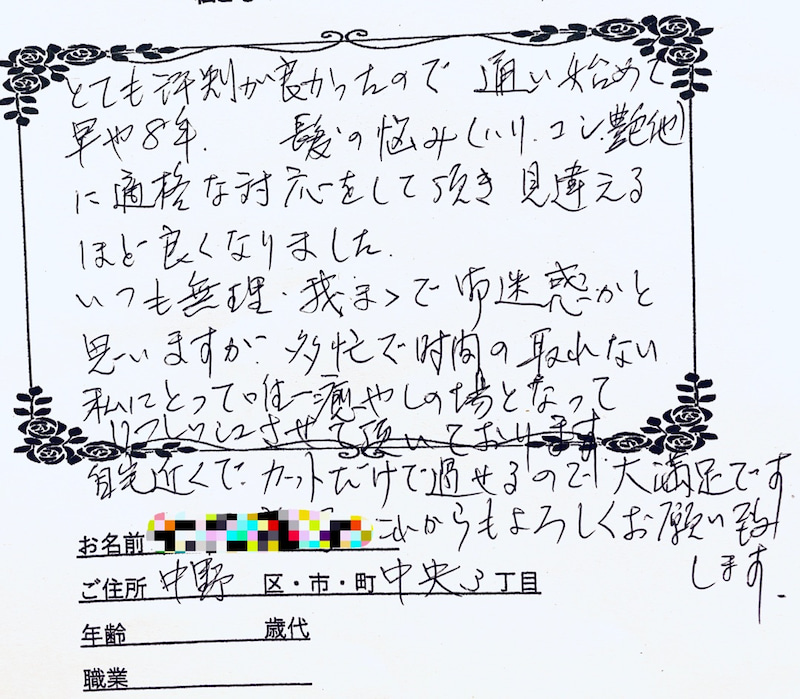 とても評判が良かったので 通い始めて
早や8年. 髪の悩み(ハリ.コシ.艶他)
に適格な対応をして頂き 見違える
ほど良くなりました.
いつも無理・我まゝで御迷惑かと
思いますが 多忙で時間の取れない
私にとって唯一癒やしの場となって
リフレッシュさせて頂いております
自宅近くで カットだけで過せるので 大満足です
これからもよろしくお願い致
します.
お名前
ご住所 中野 区・市・町 中央3丁目
年齢 歳代
職業